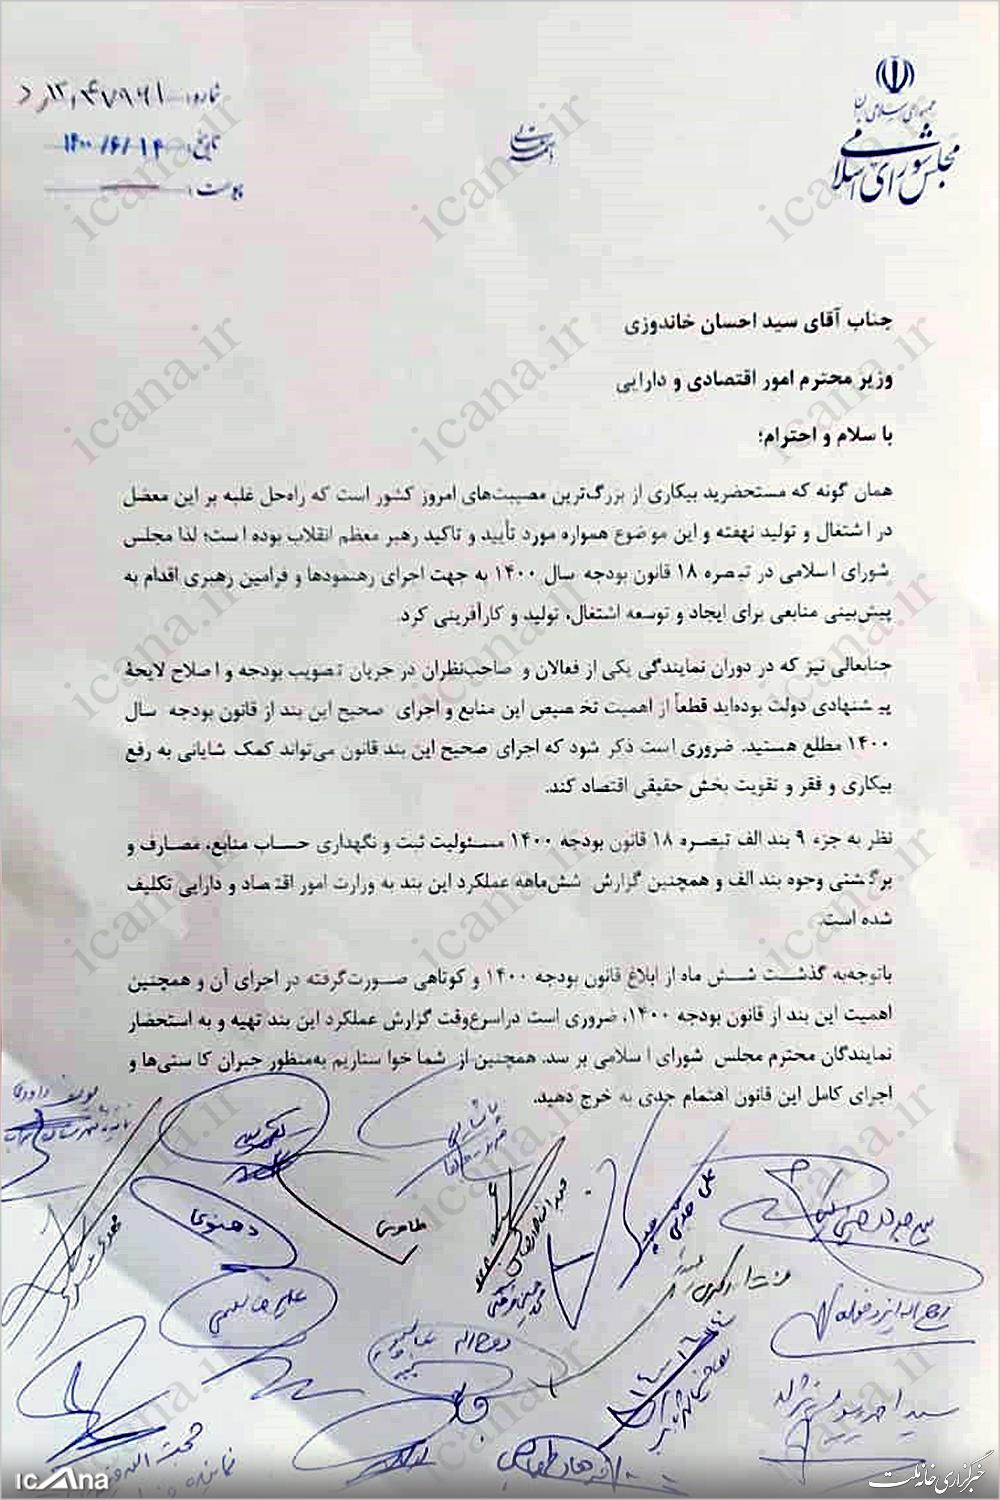 جمهوری اسلامی ایران
مجلس شورای اسلامی
شماره:
تاریخ: ۱۴۰۰/۶/۱۴
پیوست:
جناب آقای سید احسان خاندوزی
وزیر محترم امور اقتصادی و دارایی
با سلام و احترام؛
همان گونه که مستحضرید بیکاری از بزرگ‌ترین مصیبت‌های امروز کشور است که راه‌حل غلبه بر این معضل
در اشتغال و تولید نهفته و این موضوع همواره مورد تأیید و تاکید رهبر معظم انقلاب بوده است؛ لذا مجلس
شورای اسلامی در تبصره ۱۸ قانون بودجه سال ۱۴۰۰ به جهت اجرای رهنمودها و فرامین رهبری اقدام به
پیش‌بینی منابعی برای ایجاد و توسعه اشتغال، تولید و کارآفرینی کرد.
جنابعالی نیز که در دوران نمایندگی یکی از فعالان و صاحب‌نظران در جریان تصویب بودجه و اصلاح لایحهٔ
پیشنهادی دولت بوده‌اید قطعاً از اهمیت تخصیص این منابع و اجرای صحیح این بند از قانون بودجه سال
۱۴۰۰ مطلع هستید. ضروری است ذکر شود که اجرای صحیح این بند قانون می‌تواند کمک شایانی به رفع
بیکاری و فقر و تقویت بخش حقیقی اقتصاد کند.
نظر به جزء ۹ بند الف تبصره ۱۸ قانون بودجه ۱۴۰۰ مسئولیت ثبت و نگهداری حساب منابع، مصارف و
برگشتی وجوه بند الف و همچنین گزارش شش‌ماهه عملکرد این بند به وزارت امور اقتصاد و دارایی تکلیف
شده است.
باتوجه‌به گذشت شش ماه از ابلاغ قانون بودجه ۱۴۰۰ و کوتاهی صورت‌گرفته در اجرای آن و همچنین
اهمیت این بند از قانون بودجه ۱۴۰۰، ضروری است دراسرع‌وقت گزارش عملکرد این بند تهیه و به استحضار
نمایندگان محترم مجلس شورای اسلامی برسد. همچنین از شما خواستاریم به‌منظور جبران کاستی‌ها و
اجرای کامل این قانون اهتمام جدی به خرج دهید.
طاهری
دهنوی
علیرضا سلیمی
روح اله
روح اله ایزدخواه
icana.ir
icana
خبرگزاری خانه ملت